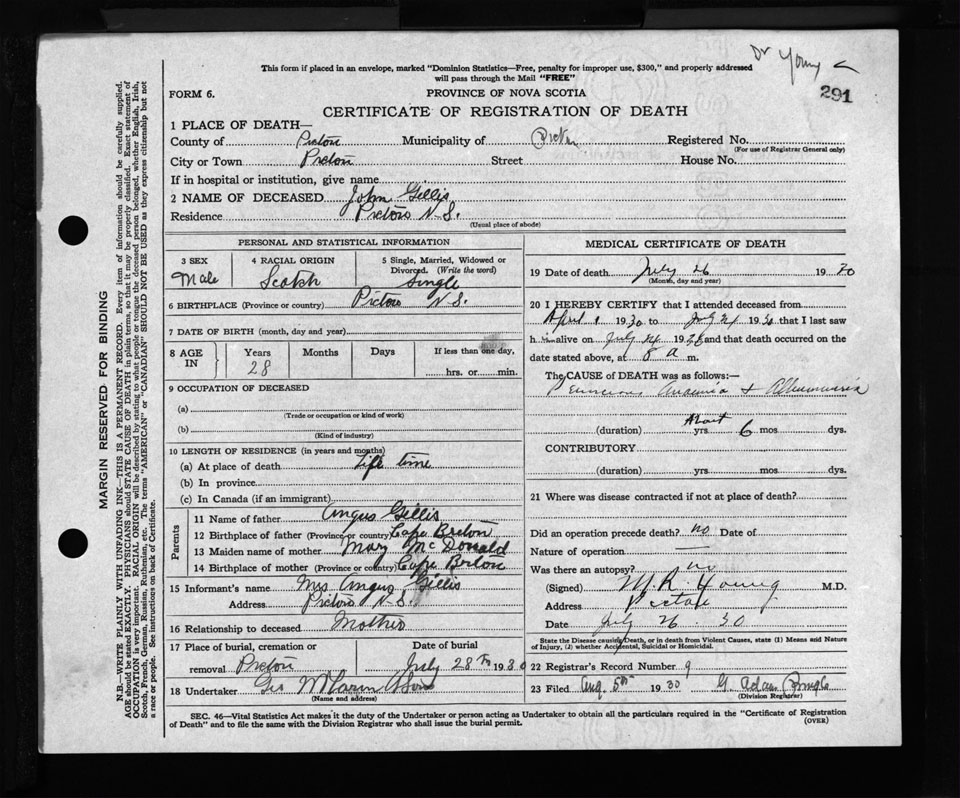 Dr Young
This form if placed in an envelope, marked "Dominion Statistics—Free, penalty for improper use, $300," and properly addressed
will pass through the Mail "FREE"
291
FORM 6.
PROVINCE OF NOVA SCOTIA
CERTIFICATE OF REGISTRATION OF DEATH
1 PLACE OF DEATH—
County of Pictou Municipality of Pictou Registered No.
(For use of Registrar General only)
City or Town Pictou Street House No.
If in hospital or institution, give name
2 NAME OF DECEASED John Gillis
Residence Pictou N.S.
(Usual place of abode)
PERSONAL AND STATISTICAL INFORMATION
3 SEX
Male
4 RACIAL ORIGIN
Scotch
5 Single, Married, Widowed or
Divorced. (Write the word)
Single
6 BIRTHPLACE (Province or country) Pictou N.S.
7 DATE OF BIRTH (month, day and year)
8 AGE
IN
Years
28
Months
Days
If less than one day,
hrs. or min.
9 OCCUPATION OF DECEASED
(a)
(Trade or occupation or kind of work)
(b)
(Kind of industry)
10 LENGTH OF RESIDENCE (in years and months)
(a) At place of death Life time
(b) In province
(c) In Canada (if an immigrant)
Parents
11 Name of father Angus Gillis
12 Birthplace of father (Province or country) Cape Breton
13 Maiden name of mother Mary McDonald
14 Birthplace of mother (Province or country) Cape Breton
15 Informant's name Mrs Angus Gillis
Address Pictou N.S.
16 Relationship to deceased Mother
17 Place of burial, cremation or
removal Pictou
Date of burial
July 28th 1930
18 Undertaker Geo McLaren & Son
(Name and address)
MEDICAL CERTIFICATE OF DEATH
19 Date of death July 26 1930
(Month, day and year)
20 I HEREBY CERTIFY that I attended deceased from
April 1 1930 to July 24 1930 that I last saw
him alive on July 24 1930 and that death occurred on the
date stated above, at 8 a m.
The CAUSE OF DEATH was as follows:—
Pernicious Anaemia + Albuminuria
(duration) About yrs 6 mos dys.
CONTRIBUTORY
(duration) yrs. mos dys.
21 Where was disease contracted if not at place of death?
Did an operation precede death? no Date of
Nature of operation —
Was there an autopsy? no
(Signed) M.R. Young M.D.
Address Pictou
Date July 26 30
State the Disease causing Death, or in death from Violent Causes, state (1) Means and Nature
of Injury, (2) whether Accidental, Suicidal or Homicidal.
22 Registrar's Record Number 9
23 Filed Aug 5th 1930 G.
(Division Registrar)
SEC. 46—Vital Statistics Act makes it the duty of the Undertaker or person acting as Undertaker to obtain all the particulars required in the "Certificate of Registration
of Death" and to file the same with the Division Registrar who shall issue the burial permit.
(OVER)
MARGIN RESERVED FOR BINDING
N.B.—WRITE PLAINLY WITH UNFADING INK—THIS IS A PERMANENT RECORD. Every item of information should be carefully supplied.
AGE should be stated EXACTLY. PHYSICIANS should STATE CAUSE OF DEATH in plain terms, so that it may be properly classified. Exact statement of
OCCUPATION is very important. RACIAL ORIGIN will be described by stating to what people or tongue the deceased person belonged, whether English, Irish,
Scotch, French, German, Russian, Ruthenian, etc. The terms "AMERICAN" or "CANADIAN" SHOULD NOT BE USED as they express citizenship but not
a race or people. See instructions on back of Certificate.